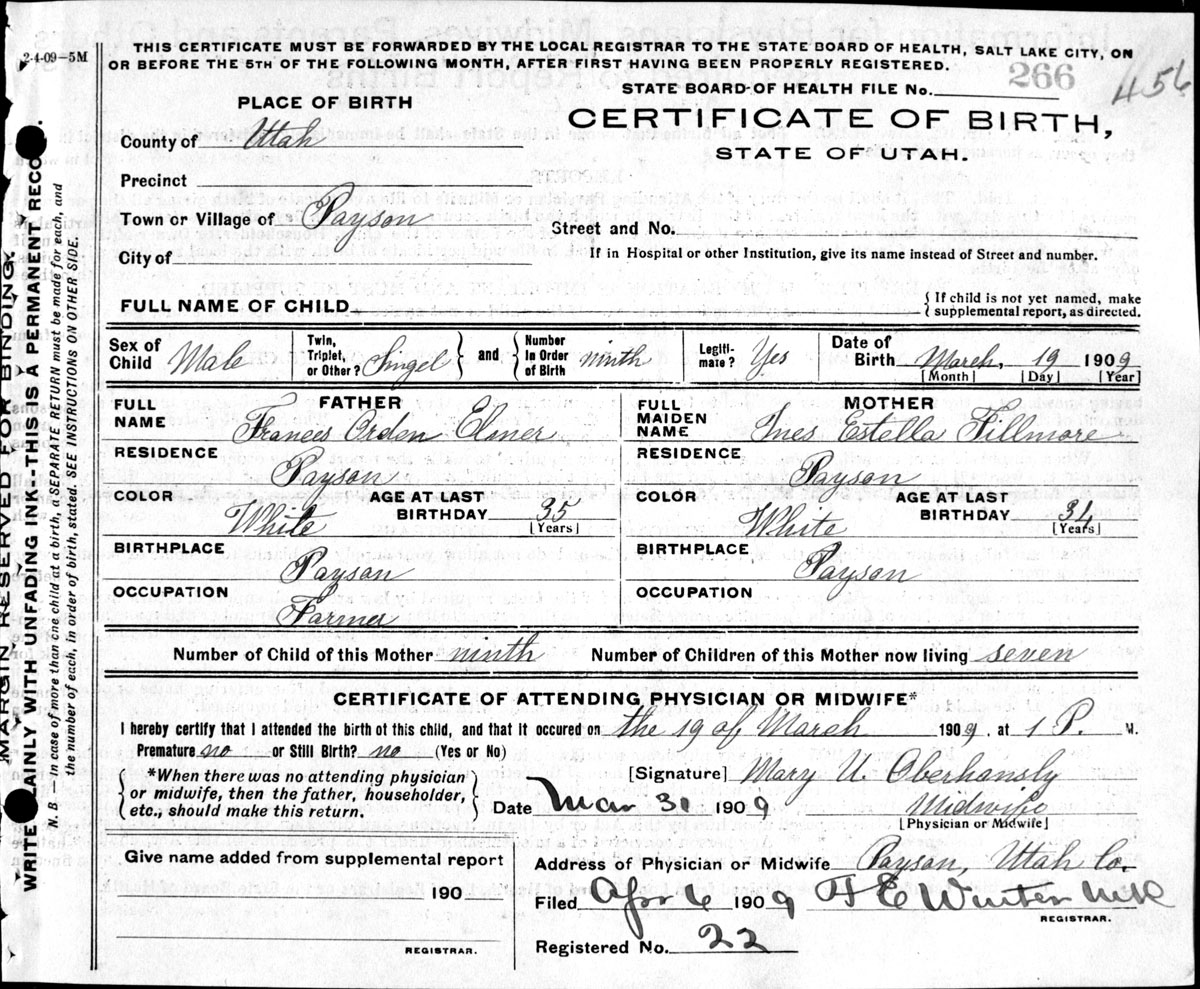 2-4-09-5M
THIS CERTIFICATE MUST BE FORWARDED BY THE LOCAL REGISTRAR TO THE STATE BOARD OF HEALTH, SALT LAKE CITY, ON
OR BEFORE THE 5TH OF THE FOLLOWING MONTH, AFTER FIRST HAVING BEEN PROPERLY REGISTERED.
STATE BOARD OF HEALTH FILE No. 266
456
PLACE OF BIRTH
CERTIFICATE OF BIRTH,
STATE OF UTAH.
County of Utah
Precinct
Town or Village of Payson
Street and No.
City of
If in Hospital or other Institution, give its name instead of Street and number.
FULL NAME OF CHILD
{ If child is not yet named, make
supplemental report, as directed.
Sex of Child Male
Twin, Triplet, or Other? Singel
and
Number in Order of Birth ninth
Legiti-mate? Yes
Date of Birth March, 19 1909
[Month] [Day] [Year]
FATHER
FULL NAME Frances Orden Elmer
RESIDENCE Payson
COLOR White
AGE AT LAST BIRTHDAY 35 [Years]
BIRTHPLACE Payson
OCCUPATION Farmer
MOTHER
FULL MAIDEN NAME Ines Estella Fillmore
RESIDENCE Payson
COLOR White
AGE AT LAST BIRTHDAY 34 [Years]
BIRTHPLACE Payson
OCCUPATION
Number of Child of this Mother ninth Number of Children of this Mother now living seven
CERTIFICATE OF ATTENDING PHYSICIAN OR MIDWIFE*
I hereby certify that I attended the birth of this child, and that it occured on the 19 of March 1909, at 1 P. M.
Premature no or Still Birth? no (Yes or No)
*When there was no attending physician
or midwife, then the father, householder,
etc., should make this return.
[Signature] Mary U. Oberhansly
Date Mar 31 1909 Midwife
[Physician or Midwife]
Give name added from supplemental report
190
REGISTRAR.
Address of Physician or Midwife Payson, Utah Co.
Filed Apr 6 1909 F E Winter
REGISTRAR.
Registered No. 22
MARGIN RESERVED FOR BINDING.
WRITE PLAINLY WITH UNFADING INK-THIS IS A PERMANENT RECORD.
N. B.-In case of more than one child at a birth, a SEPARATE RETURN must be made for each, and
the number of each, in order of birth, stated. SEE INSTRUCTIONS ON OTHER SIDE.